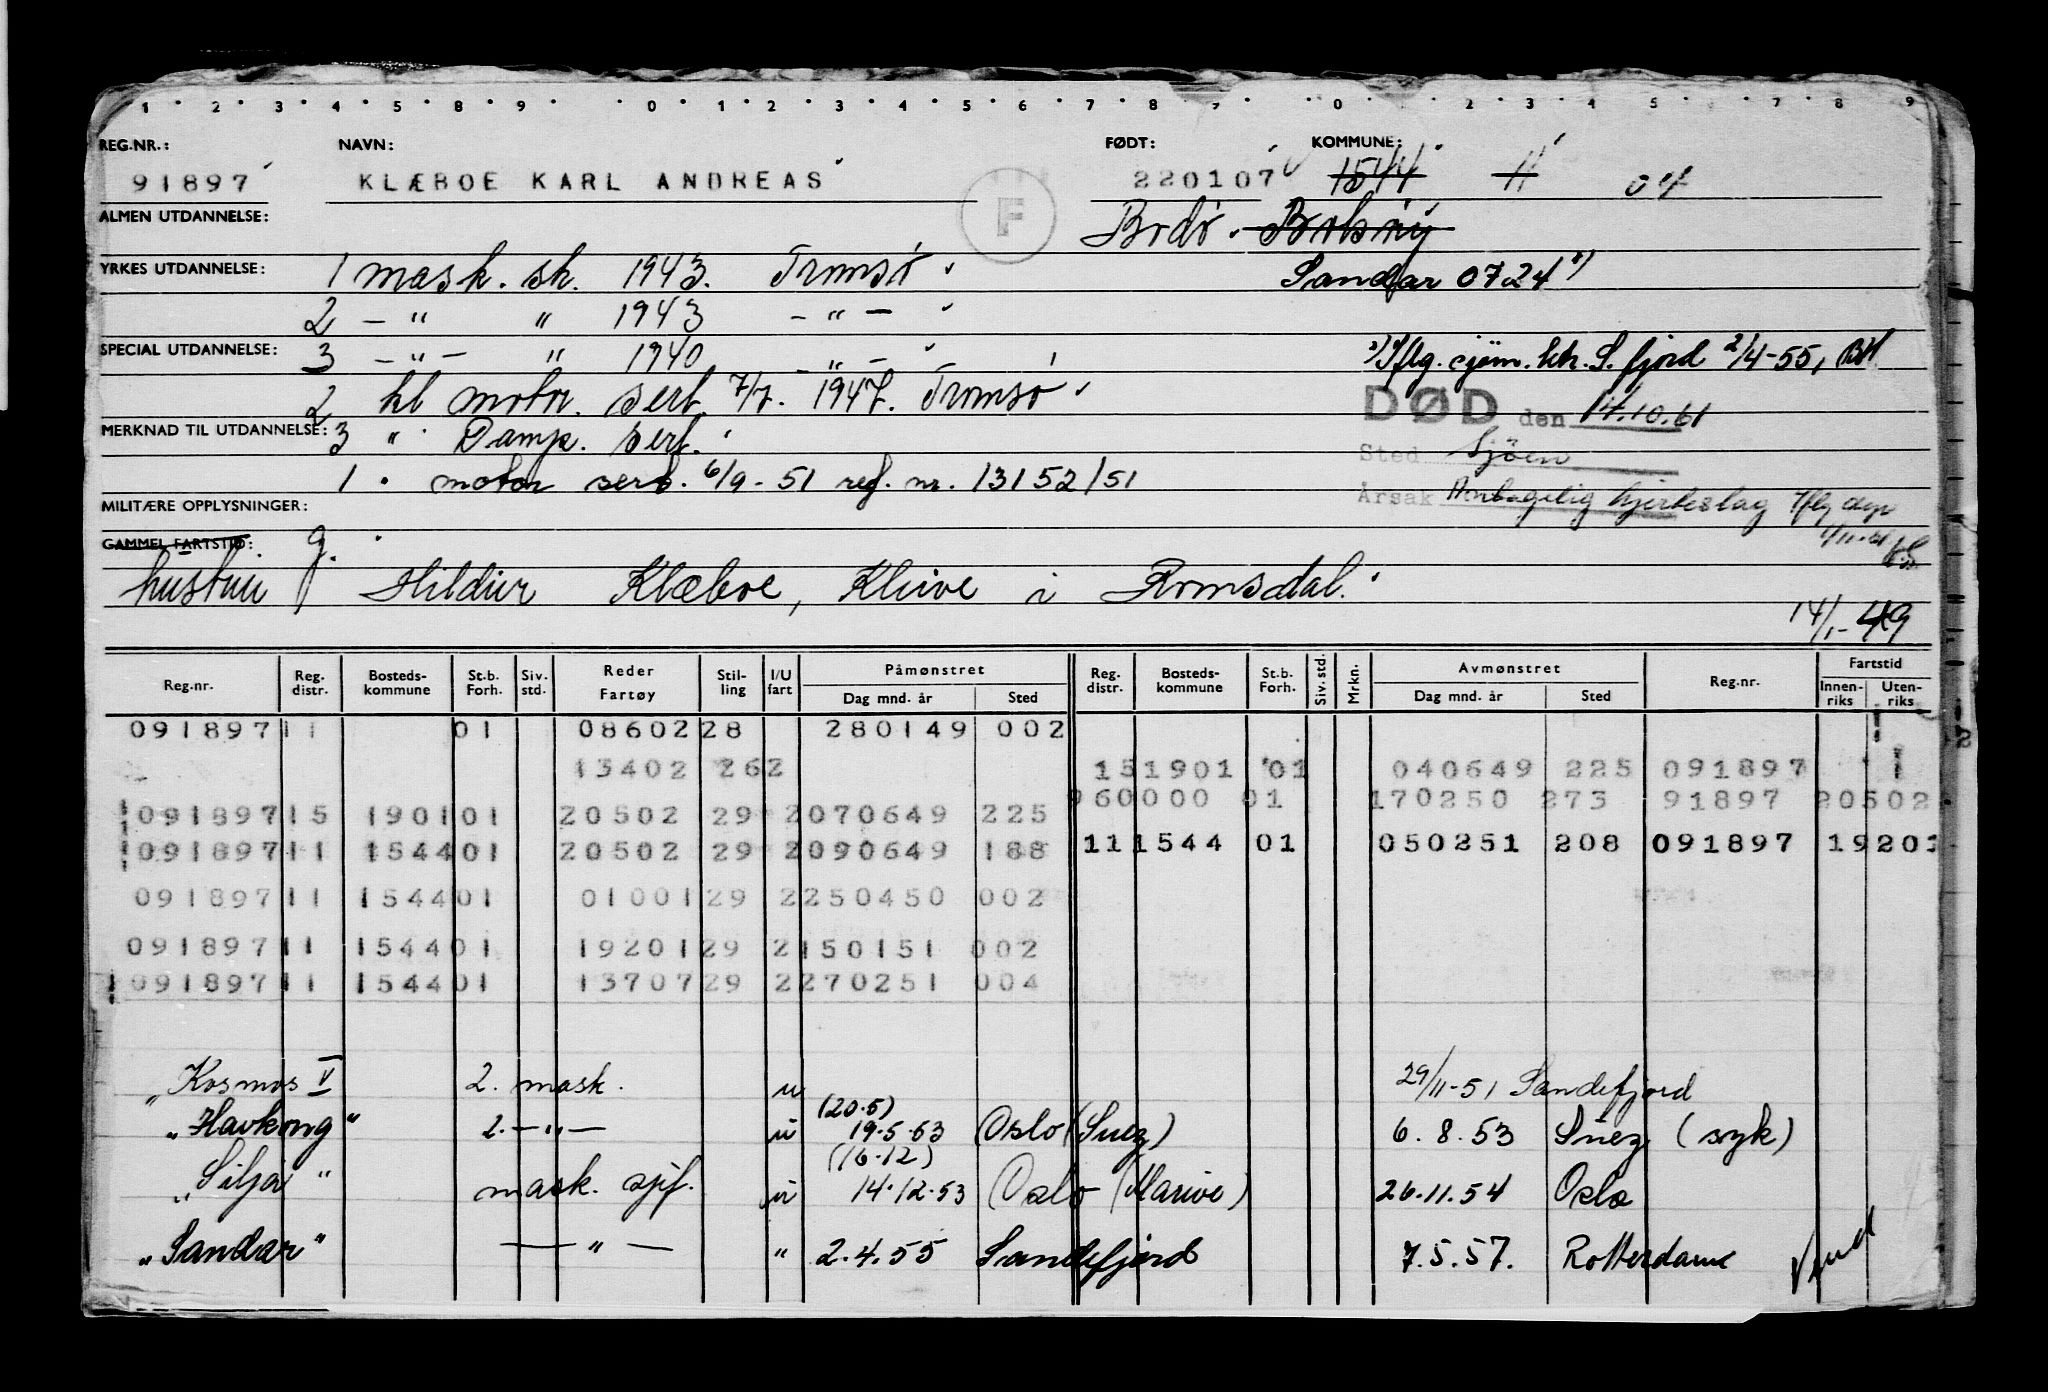 1 2 3 4 5 8 9 0 1 2 3 4 5 6 7 8 9 0 2 3 4 5 7 8 9
REG.NR.: NAVN: FØDT: KOMMUNE:
91897 KLÆBOE KARL ANDREAS 220107 1544 11 04
ALMEN UTDANNELSE: F Bodø. Bolsøy
YRKES UTDANNELSE: 1 mask. sk. 1943. Tromsø Sandar 0724 *)
2 — " " 1943 — " —
SPECIAL UTDANNELSE: 3 — " — " 1940 — " — *) Iflg. sjøm. ktr. S. fjord 2/4-55, BH
2 kl motor. sert. 7/7. 1947. Tromsø
DØD den 14.10.61
MERKNAD TIL UTDANNELSE: 3 " Damp. sert.
Sted Sjøen
1 " motor sert. 6/9-51 ref. nr. 13152/51
Årsak Antagelig hjerteslag Iflg
MILITÆRE OPPLYSNINGER:
GAMMEL FARTSTID: g.
hustru Hildur Klæboe, Kleive i Romsdal.
14/1-49
Reg.nr. Reg. distr. Bosteds- kommune St.b. Forh. Siv. std. Reder Fartøy Stil- ling I/U fart Påmønstret Dag mnd. år Sted Reg. distr. Bosteds- kommune St.b. Forh. Siv. std. Mrkn. Avmønstret Dag mnd. år Sted Reg.nr. Fartstid Innen- riks Uten- riks
091897 11 01 08602 28 280149 002
13402 262 15 1901 01 040649 225 091897
960000 01 170250 273 91897 20502
091897 15 1901 01 20502 29 2 070649 225
091897 11 1544 01 20502 29 2 090649 188 11 1544 01 050251 208 091897 19201
091897 11 1544 01 01001 29 2 250450 002
091897 11 1544 01 19201 29 2 150151 002
091897 11 1544 01 13707 29 2 270251 004
"Kosmos V 2. mask. u 29/11-51 Sandefjord
"Havkong" 2. — " — u (20.5) 19.5.53 Oslo (Suez) 6.8.53 Suez (syk)
"Silja" mask. sjf. u (16.12) 14.12.53 Oslo 26.11.54 Oslo
"Sandar" — " — " 2.4.55 Sandefjord 7.5.57. Rotterdam Vend